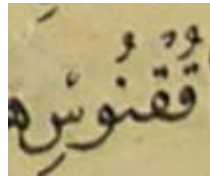 قُقْنُوْسِ